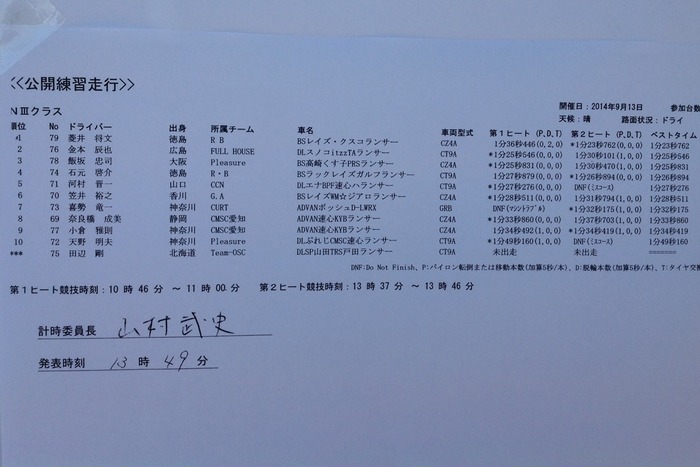 <<公開練習走行>>
開催日：2014年9月13日 参加台数
NⅢクラス 天候：晴 路面状況：ドライ
順位 No ドライバー 出身 所属チーム 車名 車両型式 第1ヒート(P,D,T) 第2ヒート(P,D,T) ベストタイム
*1 79 菱井 将文 徳島 R B BSレイズ・クスコランサー CZ4A 1分36秒446(0,2,0) *1分23秒762(0,0,0) 1分23秒762
2 76 金本 辰也 広島 FULL HOUSE DLスノコitzzTAランサー CT9A *1分25秒546(0,0,0) 1分30秒101(1,0,0) 1分25秒546
3 78 飯坂 忠司 大阪 Pleasure BS高崎くす子PRSランサー CZ4A *1分25秒831(0,0,0) 1分30秒470(1,0,0) 1分25秒831
4 74 石元 啓介 徳島 R・B BSラックレイズガルフランサー CT9A 1分27秒879(0,0,0) *1分26秒894(0,0,0) 1分26秒894
5 71 河村 晋一 山口 CCN DLエナBPF速心ハランサー CT9A *1分27秒276(0,0,0) DNF(ミスコース) 1分27秒276
6 70 笠井 裕之 香川 G.A BSレイズWM☆ジアロランサー CZ4A *1分28秒511(0,0,0) 1分31秒794(1,0,0) 1分28秒511
7 73 喜勢 竜一 神奈川 CURT ADVANボッシュD-LWRX GRB DNF(マシントラブル) *1分32秒175(1,0,0) 1分32秒175
8 69 奈良橋 成美 静岡 CMSC愛知 ADVAN速心KYBランサー CZ4A *1分33秒860(0,0,0) 1分37秒703(1,0,0) 1分33秒860
9 77 小倉 雅則 神奈川 CMSC愛知 ADVAN速心KYBランサー CZ4A 1分34秒492(1,0,0) *1分34秒419(1,0,0) 1分34秒419
10 72 天野 明夫 神奈川 Pleasure DLぷれじCMSC速心ランサー CT9A *1分49秒160(1,0,0) DNF(ミスコース) 1分49秒160
*** 75 田辺 剛 北海道 Team-OSC DLSP山田TRS戸田ランサー CT9A 未出走 未出走 =======
DNF:Do Not Finish、P:パイロン転倒または移動本数(加算5秒/本)、D:脱輪本数(加算5秒/本)、T:タイヤ交換
第1ヒート競技時刻：10 時 46 分 ～ 11 時 00 分 第2ヒート競技時刻：13 時 37 分 ～ 13 時 46 分
計時委員長 山村 武史
発表時刻 13 時 49 分